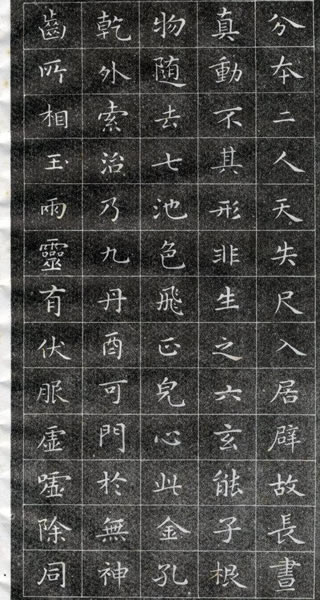 分夲二人天失尺入居辟故長晝
真動不其形非生之六玄能子根
物随去七池色飛正皃心此金孔
乾外索治乃九丹酉可門於無神
齒所相玉雨靈有伏服虚嘘除同